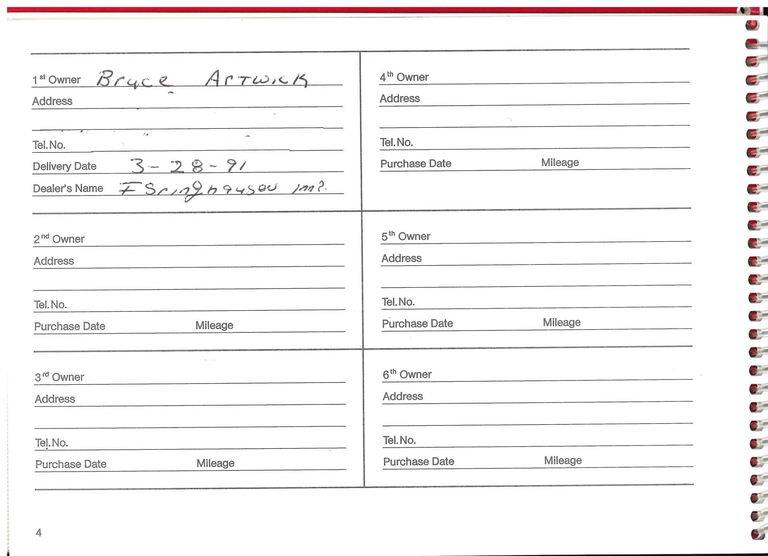 1st Owner Bryce Artwick
Address
Tel. No.
Delivery Date 3-28-91
Dealer's Name
2nd Owner
Address
Tel. No.
Purchase Date Mileage
3rd Owner
Address
Tel. No.
Purchase Date Mileage
4th Owner
Address
Tel. No.
Purchase Date Mileage
5th Owner
Address
Tel. No.
Purchase Date Mileage
6th Owner
Address
Tel. No.
Purchase Date Mileage
4